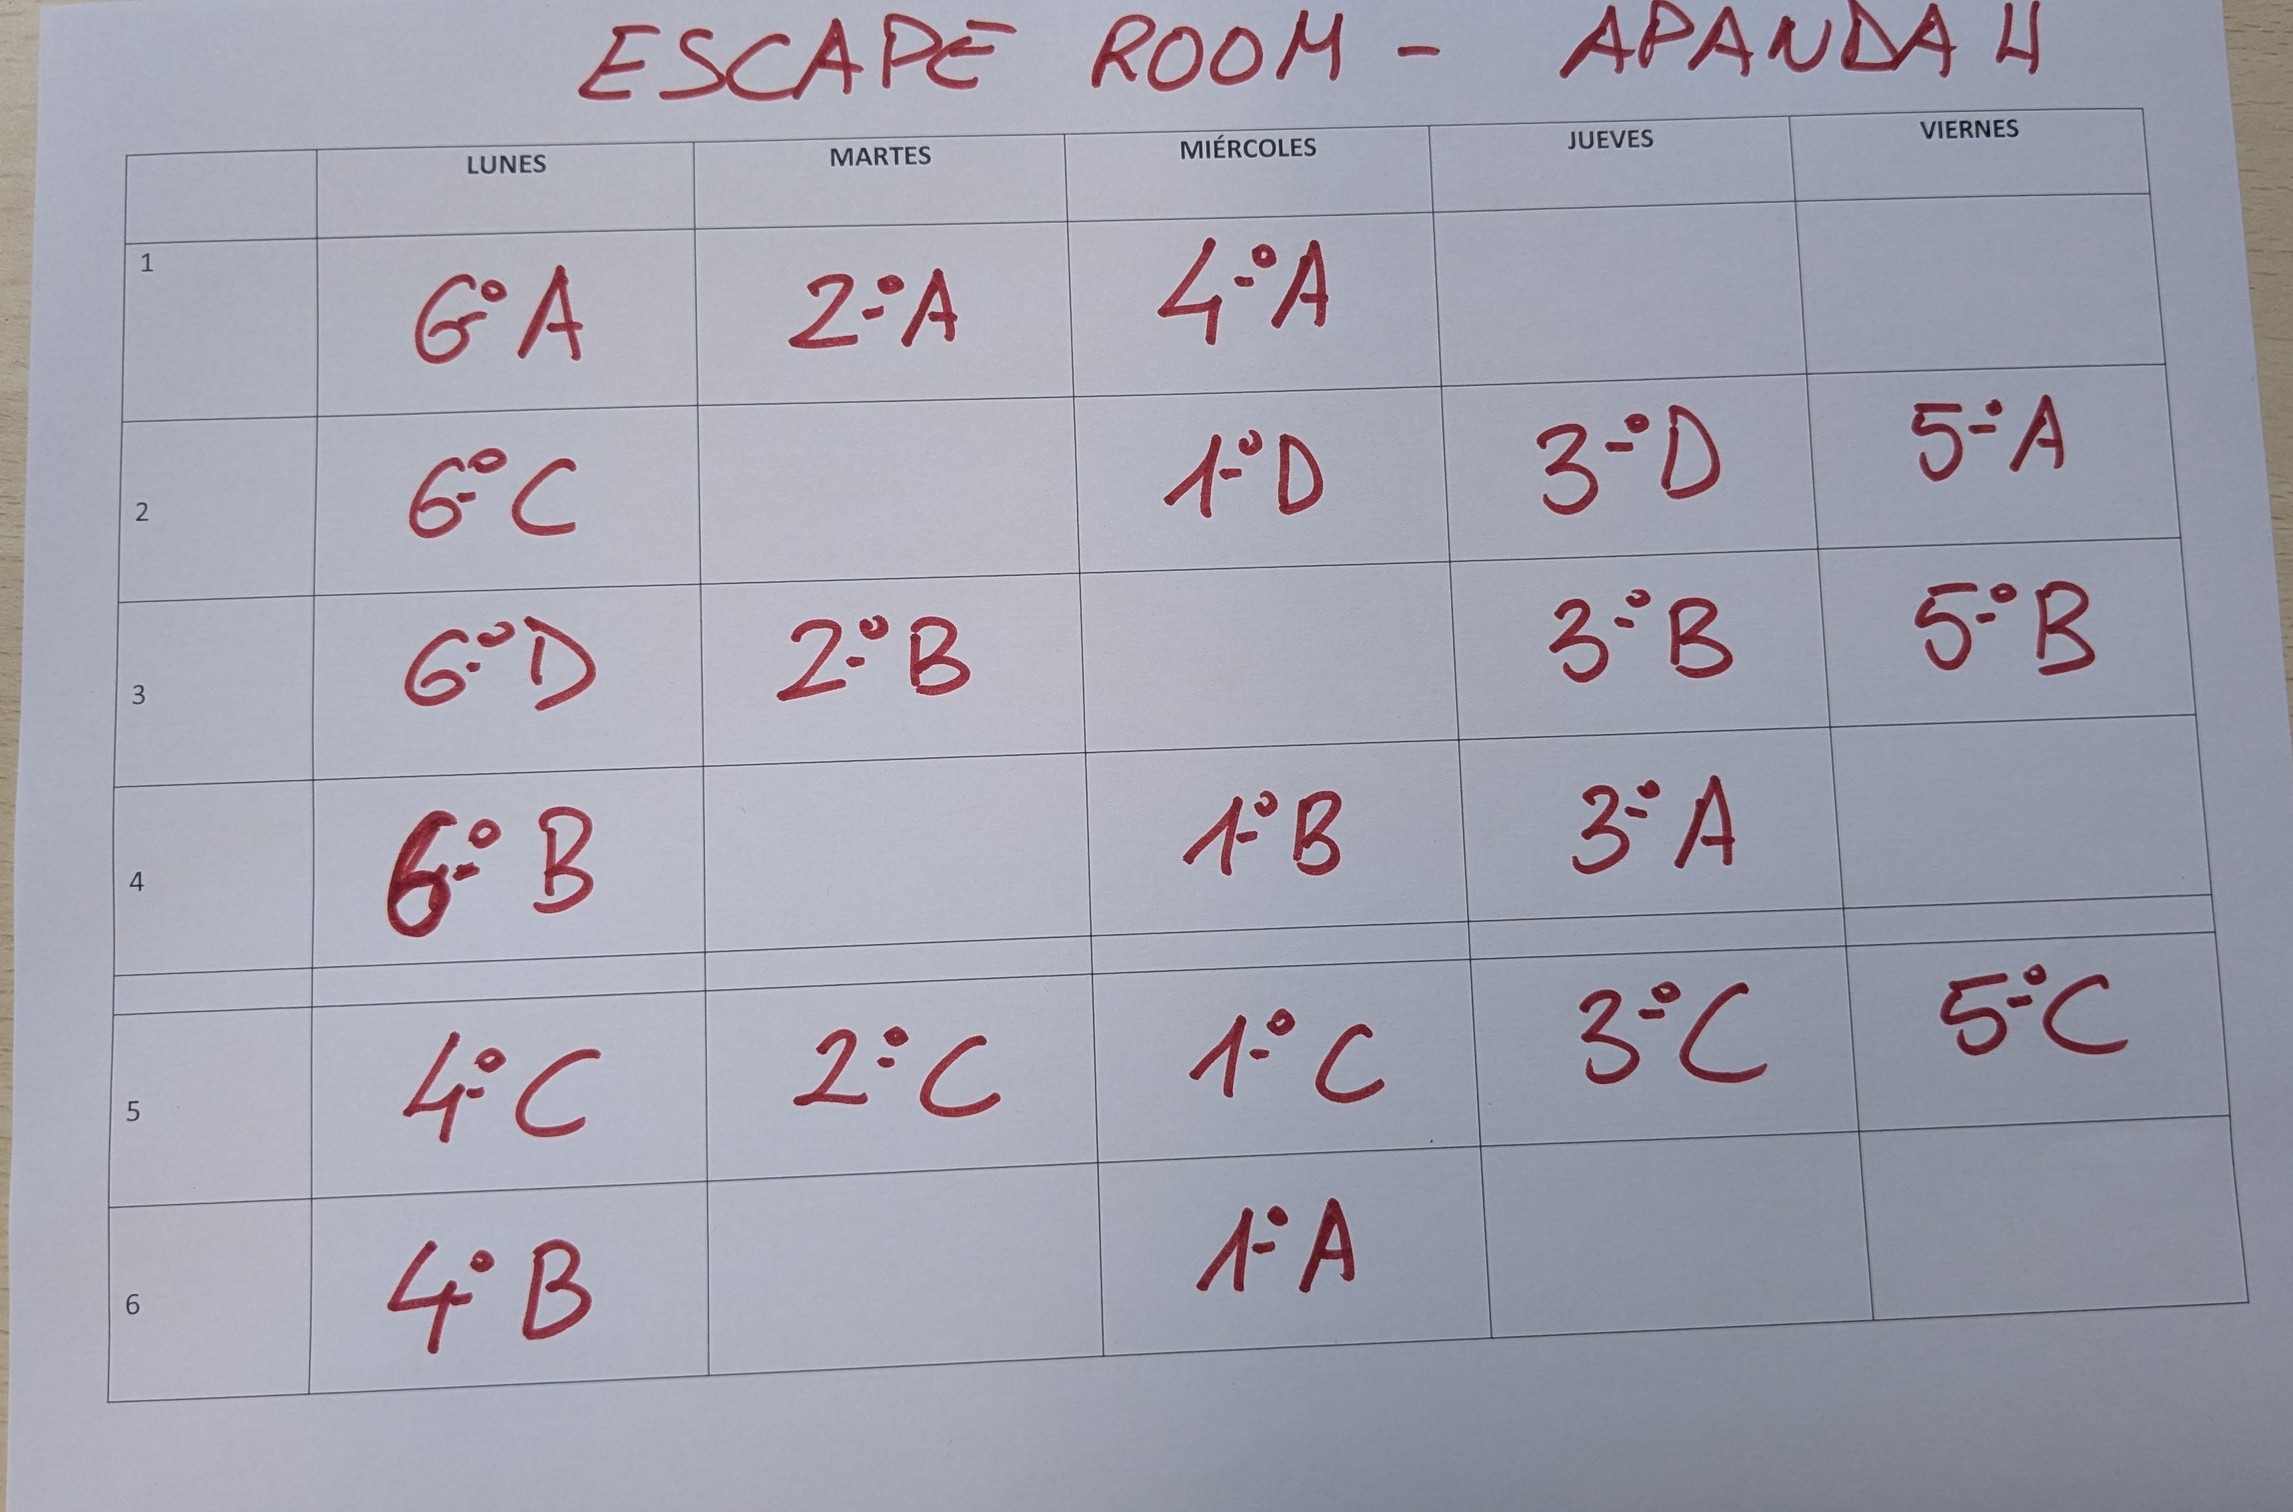 ESCAPE ROOM - APANDAH
LUNES MARTES MIÉRCOLES JUEVES VIERNES
1 6º A 2º A 4º A
2 6º C 1º D 3º D 5º A
3 6º D 2º B 3º B 5º B
4 6º B 1º B 3º A
5 4º C 2º C 1º C 3º C 5º C
6 4º B 1º A